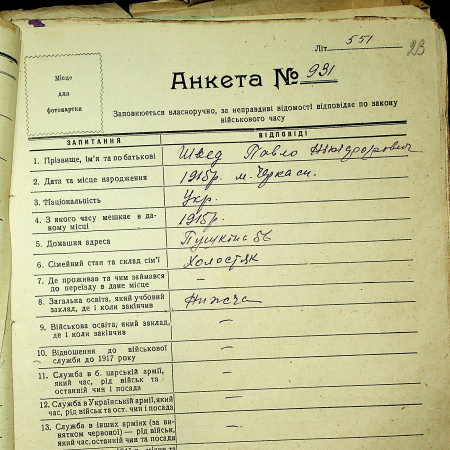 Літ. 551
23
Місце
для
фотокартки
Анкета № 931
Заповнюється власноручно, за неправдиві відомості відповідає по закону
військового часу
ЗАПИТАННЯ ВІДПОВІДІ
1. Прізвище, ім'я та по батькові Швед Павло Нікіфорович
2. Дата та місце народження 1915р. м. Черкаси.
3. Національність Укр.
4. З якого часу мешкає в да-
ному місці 1915р.
5. Домашня адреса Пушкіна 56
6. Сімейний стан та склад сім'ї Холостяк
7. Де проживав та чим займався
до переїзду в дане місце —
8. Загальна освіта, який учбовий
заклад, де і коли закінчив Нижча
9. Військова освіта, який заклад,
де і коли закінчив —
10. Відношення до військової
служби до 1917 року —
11. Служба в б. царській армії,
який час, рід військ та
останній чин і посада —
12. Служба в Українській армії, який
час, рід військ та ост. чин і посада —
13. Служба в інших арміях (за ви-
нятком червоної) — рід військ,
який час, останній чин та посада —